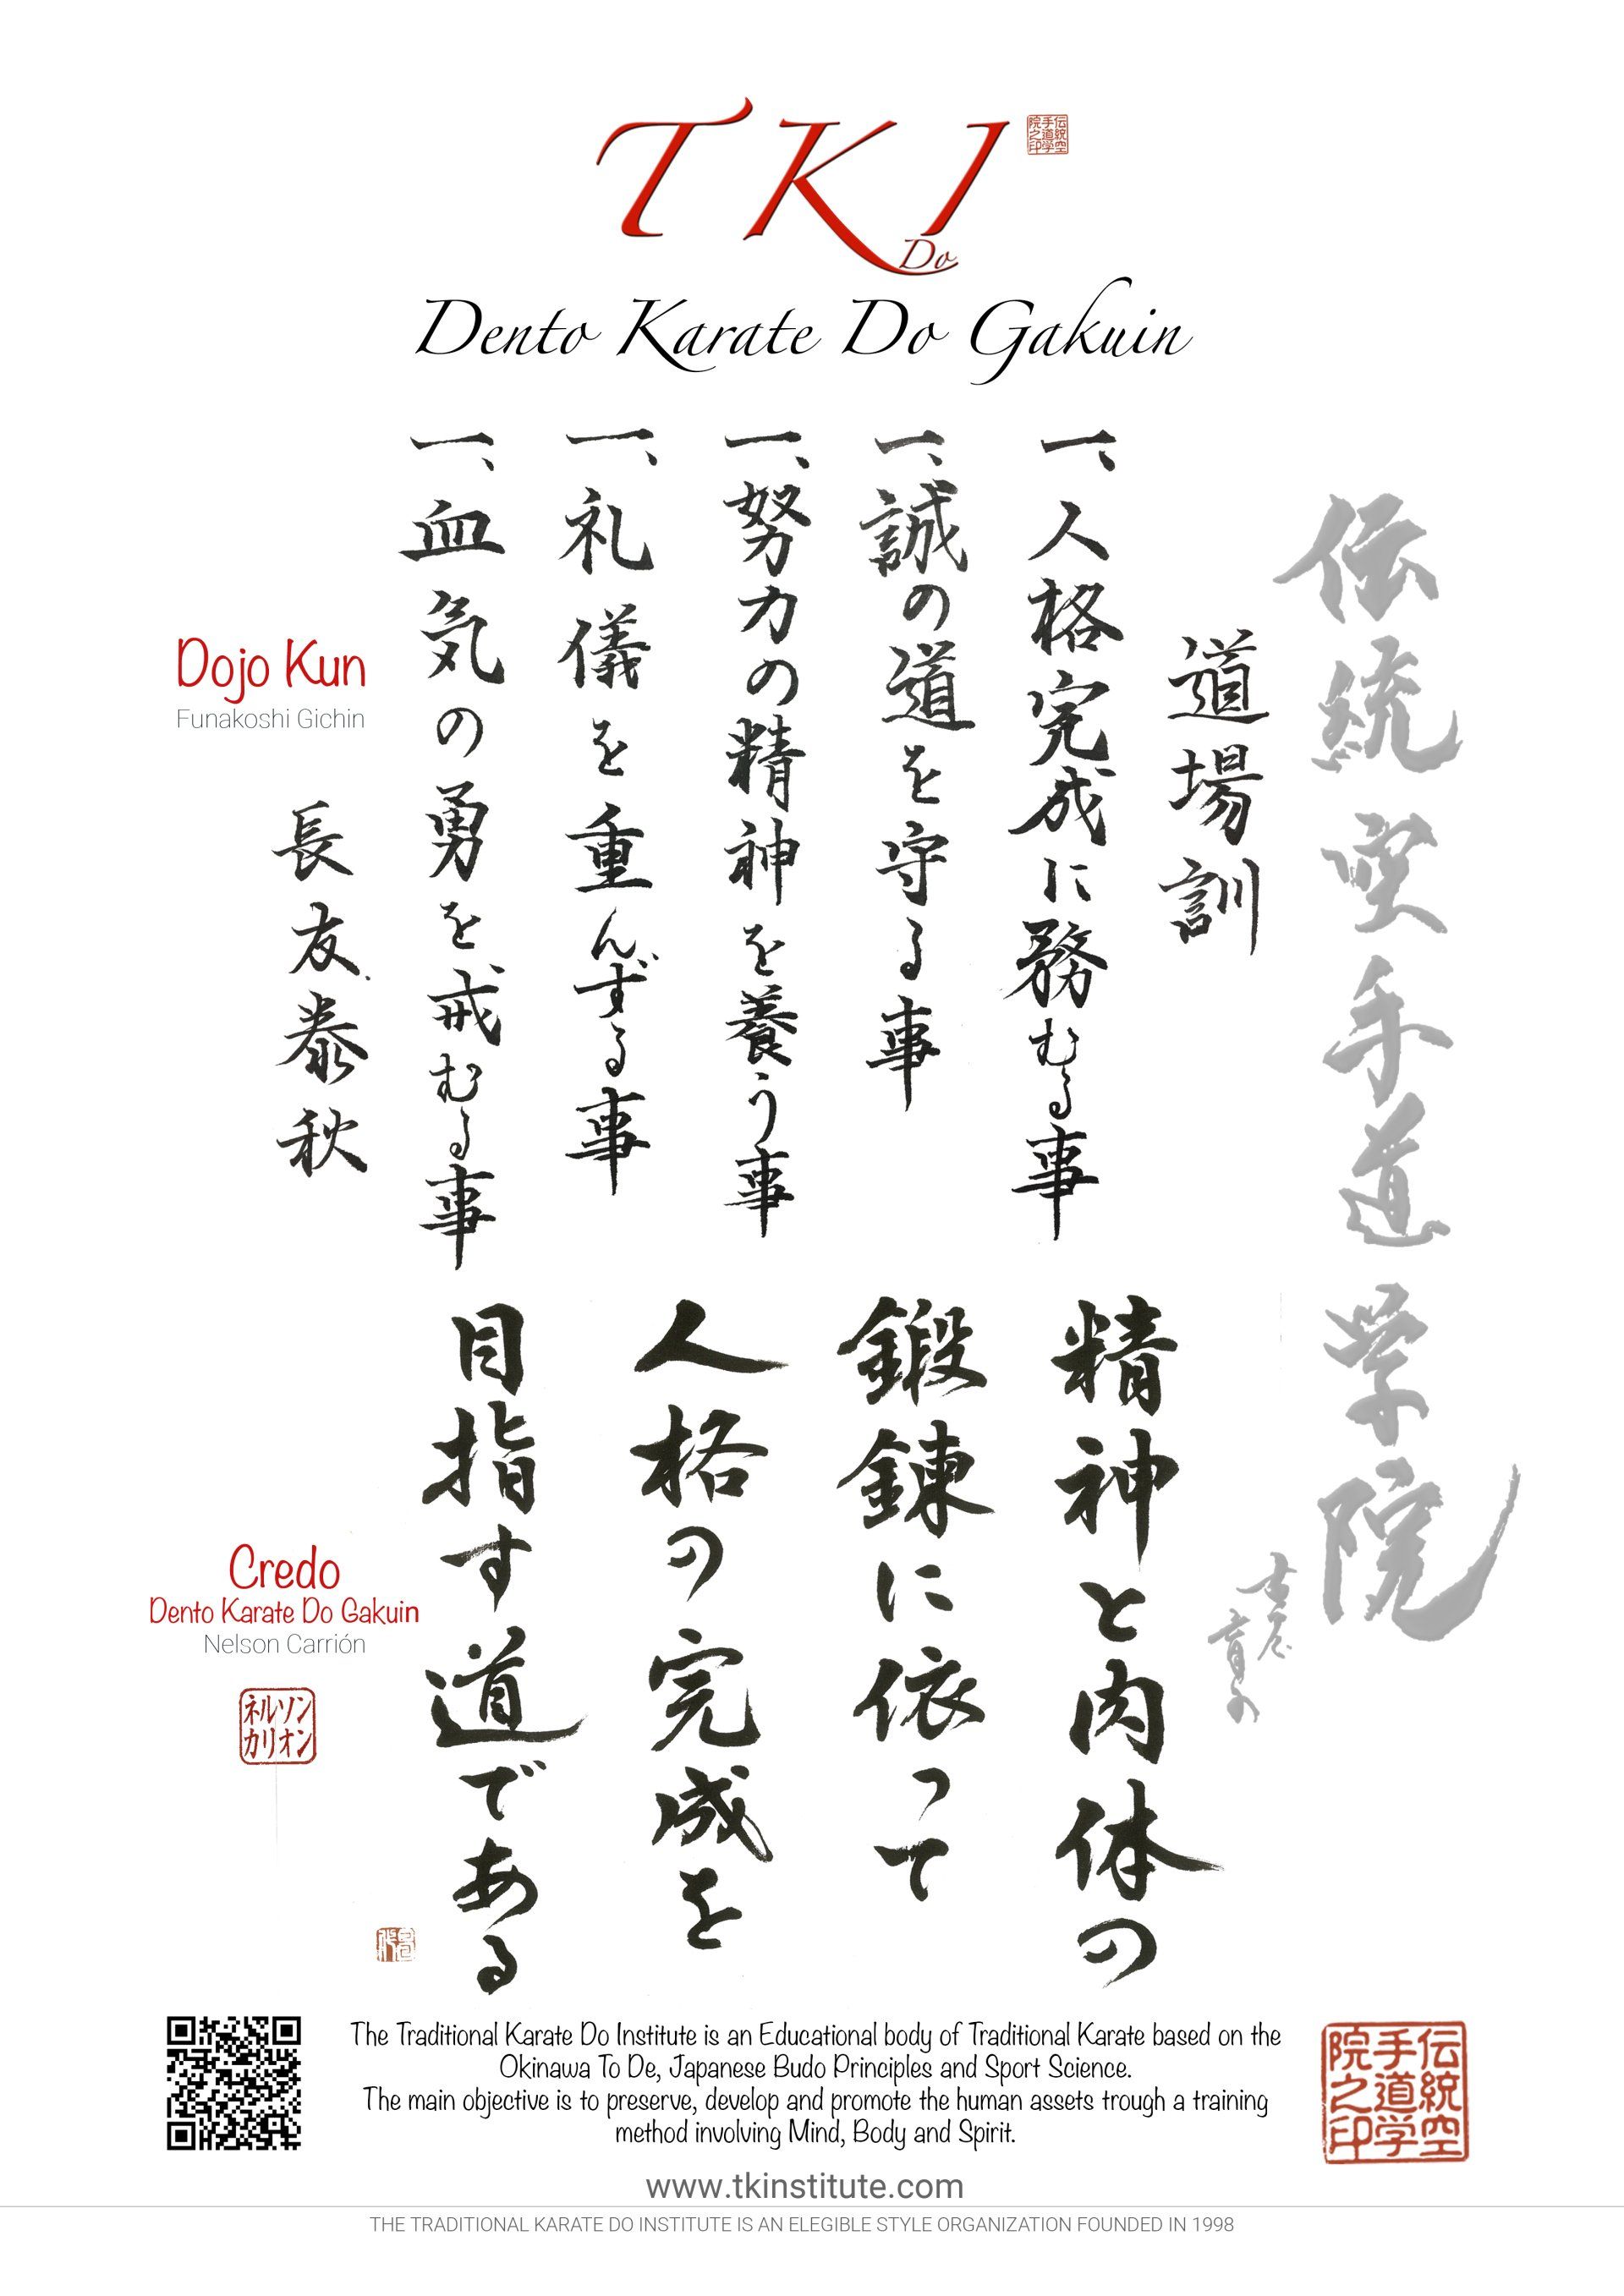 TKI
Do
伝統空手道学院之印
Dento Karate Do Gakuin
伝統空手道学院
道場訓
一、人格完成に務むる事
一、誠の道を守る事
一、努力の精神を養う事
一、礼儀を重んずる事
一、血気の勇を戒むる事
長友泰秋
Dojo Kun
Funakoshi Gichin
精神と肉体の
鍛錬に依って
人格の完成を
目指す道である
Credo
Dento Karate Do Gakuin
Nelson Carrión
ネルソン
カリオン
The Traditional Karate Do Institute is an Educational body of Traditional Karate based on the
Okinawa To De, Japanese Budo Principles and Sport Science.
The main objective is to preserve, develop and promote the human assets trough a training
method involving Mind, Body and Spirit.
伝統空手道学院之印
www.tkinstitute.com
THE TRADITIONAL KARATE DO INSTITUTE IS AN ELEGIBLE STYLE ORGANIZATION FOUNDED IN 1998